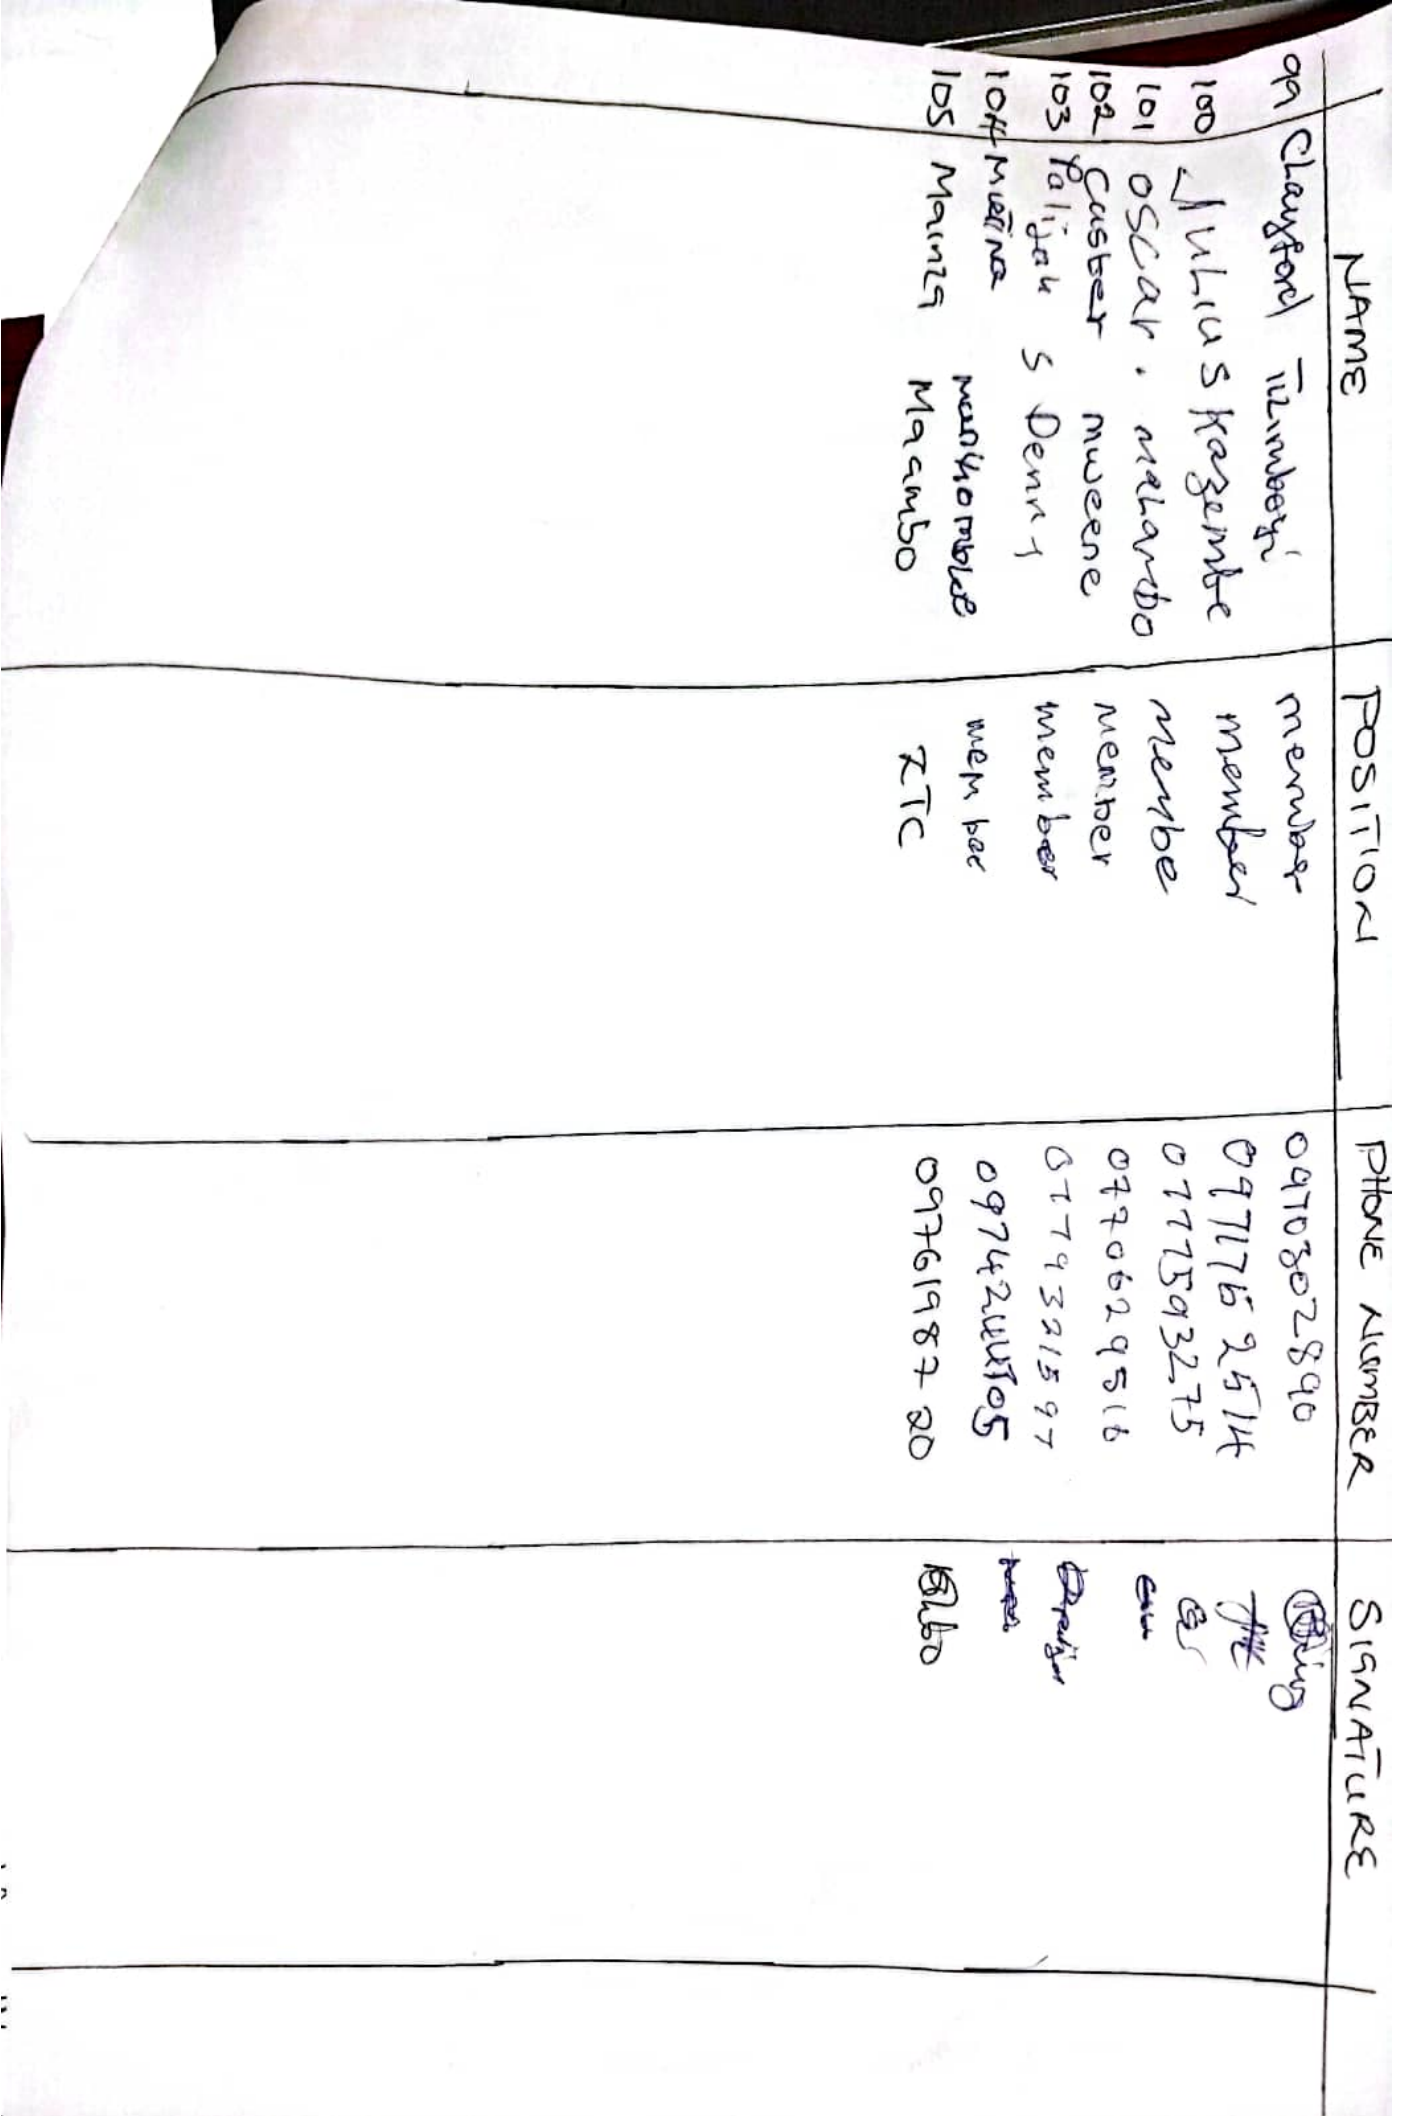 NAME POSITION PHONE NUMBER SIGNATURE
99 Clayford member 0970302890
100 JULIUS Kazembe member 0971762514
101 OSCAR. MaHambo Membe 0777593275
102 Custer mweene member 0770629516
103 Yalijah S Denny member 0779321597
104 member
105 Mainza Maambo ZTC 0976198720